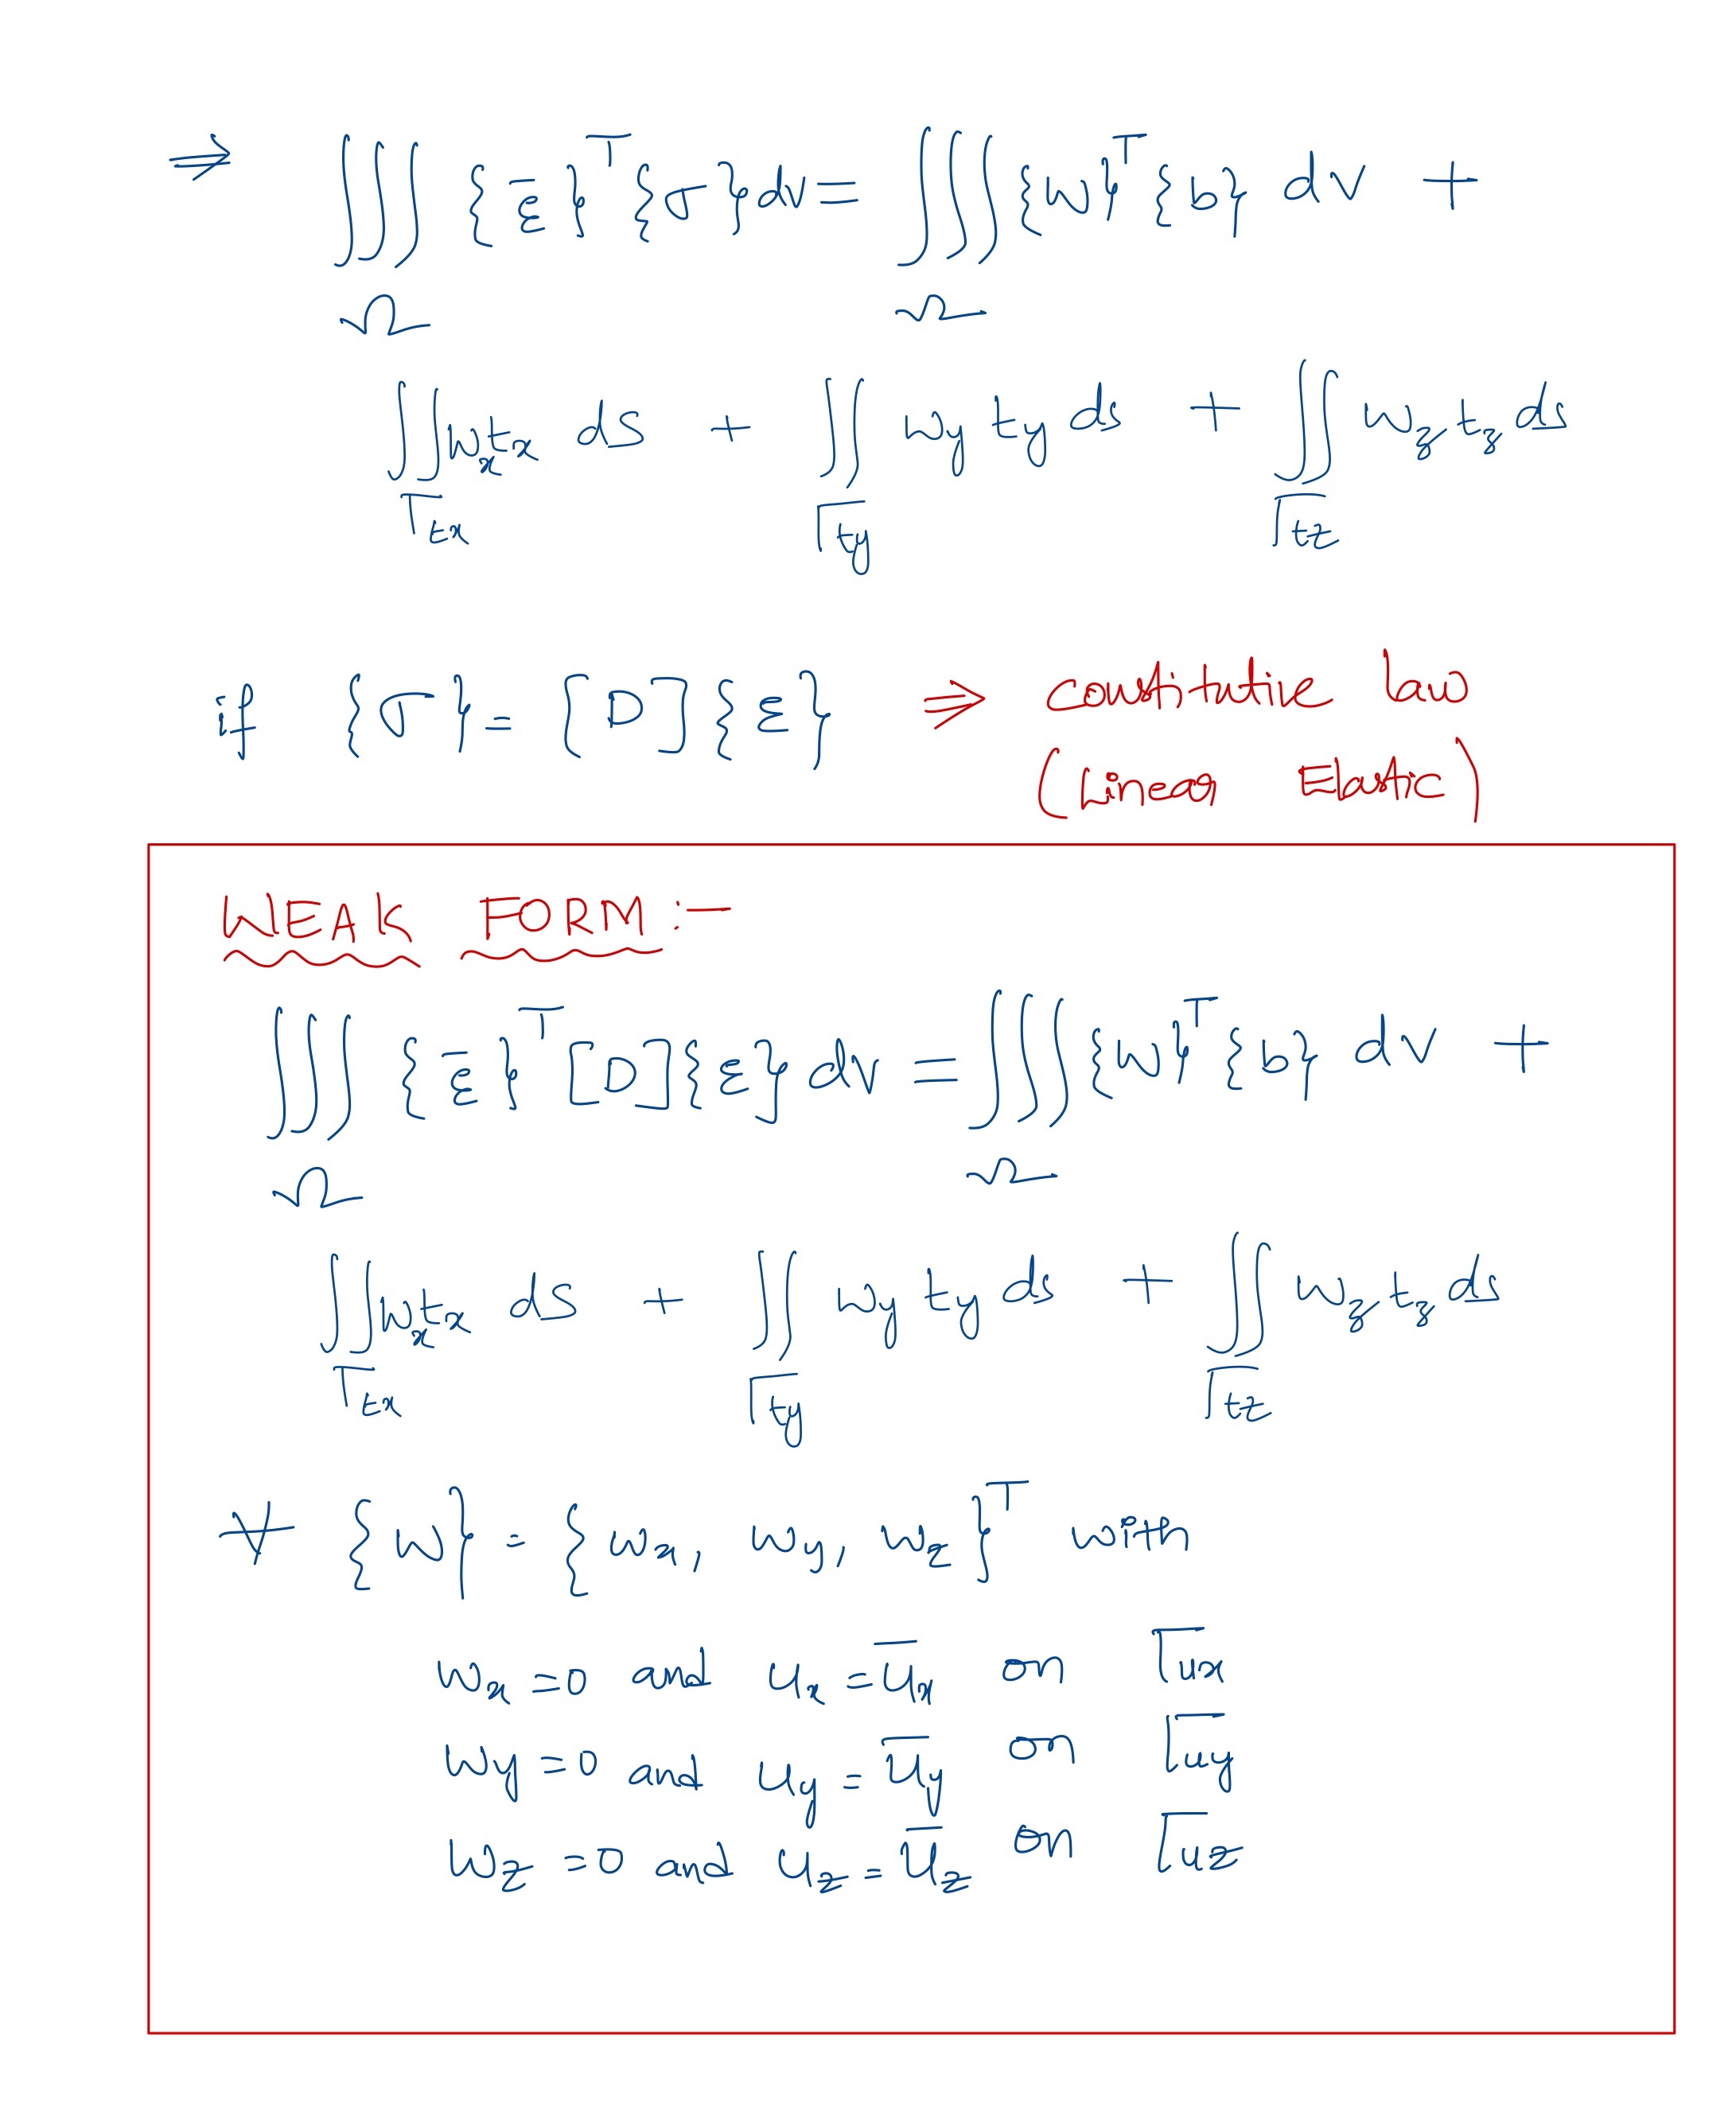 ⇒ ∭_Ω {ε̄}^T {σ} dv = ∭_Ω {w}^T {b} dv +
∬_Γtx w_x t_x ds + ∬_Γty w_y t_y ds + ∬_Γtz w_z t_z ds
if {σ} = [D]{ε} ⇒ constitutive law
(Linear Elastic)
WEAK FORM :-
∭_Ω {ε̄}^T [D]{ε} dv = ∭_Ω {w}^T {b} dv +
∬_Γtx w_x t_x ds + ∬_Γty w_y t_y ds + ∬_Γtz w_z t_z ds
∀ {w} = {w_x, w_y, w_z}^T with
w_x = 0 and u_x = ū_x on Γux
w_y = 0 and u_y = ū_y on Γuy
w_z = 0 and u_z = ū_z on Γuz